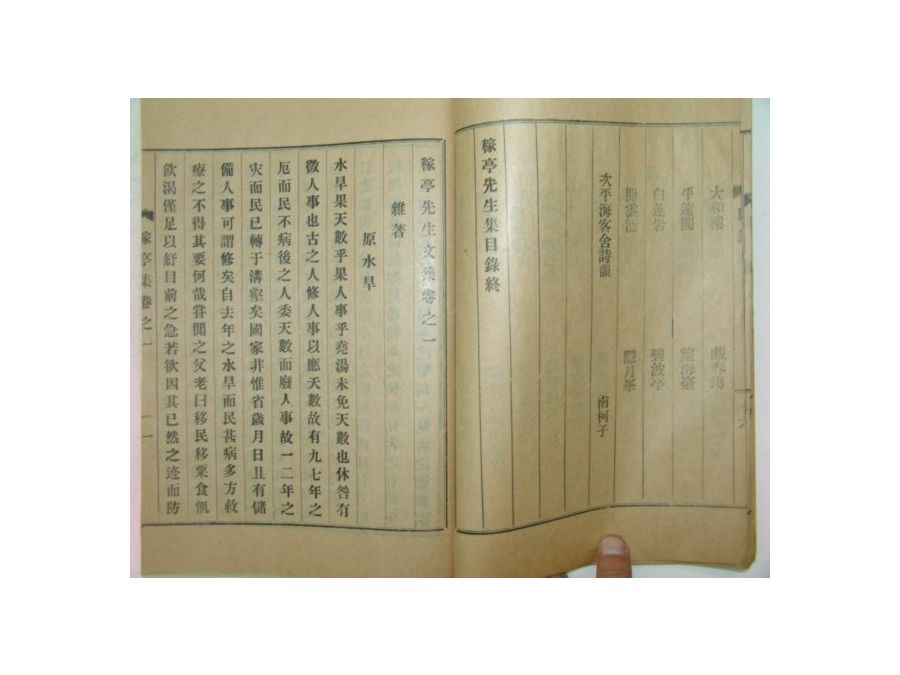 大和樓
平遠閣 望海臺
白蓮岩 碧波亭
開雲浦 隱月峯
次平海客舍詩韻 南柯子
稼亭先生集目錄終
稼亭先生文集卷之一
雜著
原水旱
水旱果天數乎果人事乎堯湯未免天數也休咎有
徵人事也古之人修人事以應天數故有九七年之
厄而民不病後之人委天數而廢人事故一二年之
灾而民已轉于溝壑矣國家非惟省歲月日且有儲
備人事可謂修矣自去年之水旱而民甚病多方救
療之不得其要何哉嘗聞之父老曰移民移粟食飢
飮渴僅足以紓目前之急若欲因其已然之迹而防
稼亭集卷之一 一